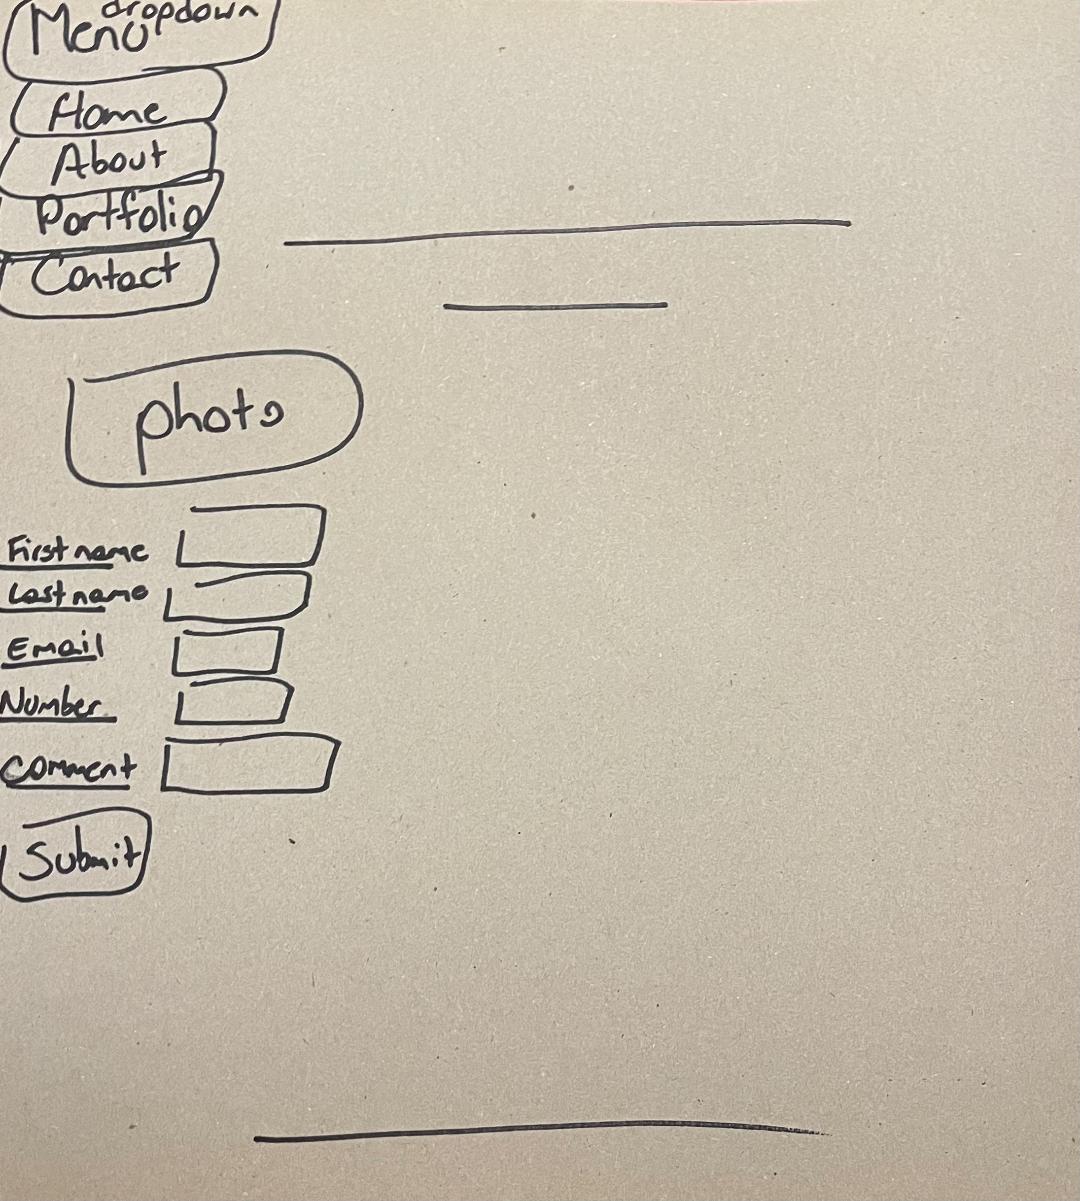 dropdown
Menu
Home
About
Portfolio
Contact
photo
First name
Last name
Email
Number
Comment
Submit